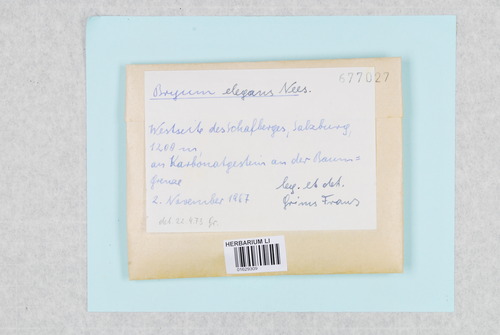 677027
Bryum elegans Nees.
Westseite des Schafberges, Salzburg,
1200 m,
an Karbonatgestein an der Baum-
grenze
leg. et det.
2. November 1967
Grims Franz
det. 22.4.73 Gr.
HERBARIUM LI